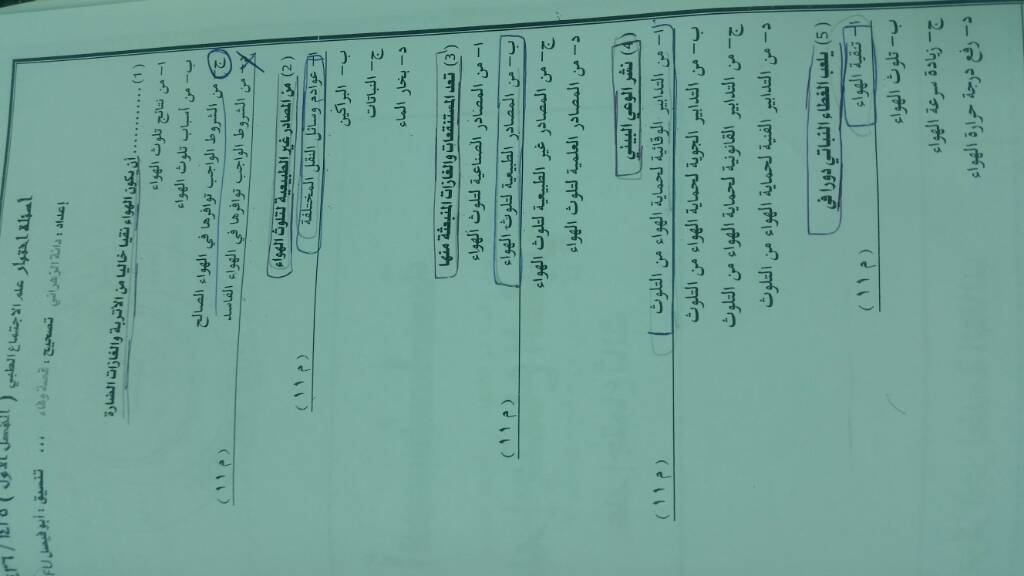 أسئلة اختبار علم الاجتماع الطبي ( الفصل الأول )
إعداد : دانة الزهراني تصحيح : قصة وفاء ... تنسيق : ابو فيصل FU
(1) ............ أن يكون الهواء نقيا خاليا من الأتربة والغازات الضارة
ا – من نتائج تلوث الهواء
ب – من أسباب تلوث الهواء
ج – من الشروط الواجب توافرها في الهواء الصالح
د – من الشروط الواجب توافرها في الهواء الفاسد ( م ١١ )
(2) من المصادر غير الطبيعية لتلوث الهواء
ا – عوادم وسائل النقل المختلفة ( م ١١ )
ب – البراكين
ج – النباتات
د – بخار الماء
(3) تعد المستنقعات والغازات المنبعثة منها
ا – من المصادر الصناعية لتلوث الهواء
ب – من المصادر الطبيعية لتلوث الهواء ( م ١١ )
ج – من المصادر غير الطبيعية لتلوث الهواء
د – من المصادر العلمية لتلوث الهواء
(4) نشر الوعي البيئي
ا – من التدابير الوقائية لحماية الهواء من التلوث ( م ١١ )
ب – من التدابير الجوية لحماية الهواء من التلوث
ج – من التدابير القانونية لحماية الهواء من التلوث
د – من التدابير الفنية لحماية الهواء من التلوث
(5) يلعب الغطاء النباتي دورا في
ا – تنقية الهواء ( م ١١ )
ب – تلوث الهواء
ج – زيادة سرعة الهواء
د – رفع درجة حرارة الهواء